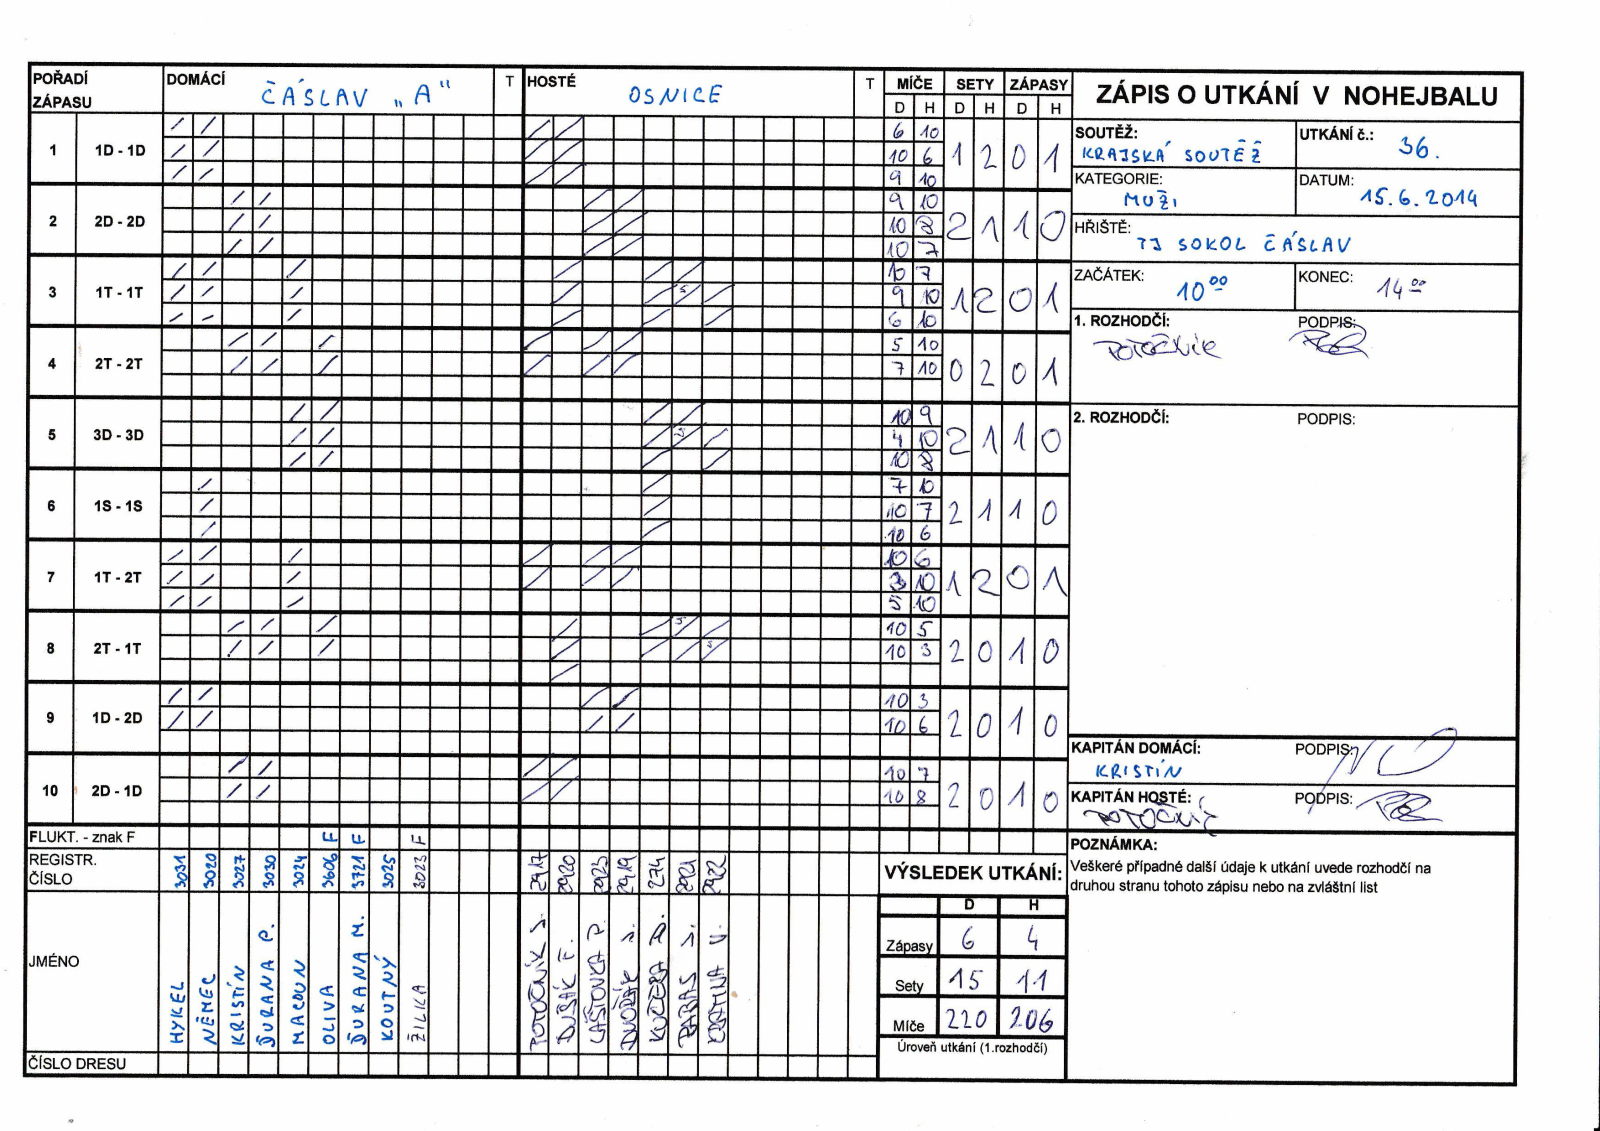 POŘADÍ ZÁPASU DOMÁCÍ ČÁSLAV „A" T HOSTÉ OSNICE T MÍČE SETY ZÁPASY
D H D H D H
ZÁPIS O UTKÁNÍ V NOHEJBALU
SOUTĚŽ: KRAJSKÁ SOUTĚŽ
UTKÁNÍ č.: 36.
KATEGORIE: MUŽI
DATUM: 15.6.2014
HŘIŠTĚ: TJ SOKOL ČÁSLAV
ZAČÁTEK: 10 00
KONEC: 14 00
1. ROZHODČÍ: POTOČNÍK
PODPIS:
2. ROZHODČÍ:
PODPIS:
1 1D - 1D 6 10 1 2 0 1
10 6
9 10
2 2D - 2D 9 10 2 1 1 0
10 8
10 7
3 1T - 1T 10 7 1 2 0 1
9 10
6 10
4 2T - 2T 5 10 0 2 0 1
7 10
5 3D - 3D 10 9 2 1 1 0
4 10
10 8
6 1S - 1S 7 10 2 1 1 0
10 7
10 6
7 1T - 2T 10 6 1 2 0 1
3 10
5 10
8 2T - 1T 10 5 2 0 1 0
10 3
9 1D - 2D 10 3 2 0 1 0
10 6
10 2D - 1D 10 7 2 0 1 0
10 8
KAPITÁN DOMÁCÍ: KRISTÍN
PODPIS:
KAPITÁN HOSTÉ: POTOČNÍK
PODPIS:
FLUKT. - znak F F F F
REGISTR. ČÍSLO 3031 3020 3027 3030 3024 3606 3721 3025 3023 2917 2920 2923 2919 274 2921 2922
JMÉNO HYKEL NĚMEC KRISTÍN ĎURANA P. MACOUN OLIVA ĎURANA M. KOUTNÝ ŽILKA POTOČNÍK S. DUŠÁK F. LAŠTOVKA P. DVOŘÁK KUČERA
ČÍSLO DRESU
VÝSLEDEK UTKÁNÍ:
D H
Zápasy 6 4
Sety 15 11
Míče 220 206
Úroveň utkání (1.rozhodčí)
POZNÁMKA:
Veškeré případné další údaje k utkání uvede rozhodčí na
druhou stranu tohoto zápisu nebo na zvláštní list